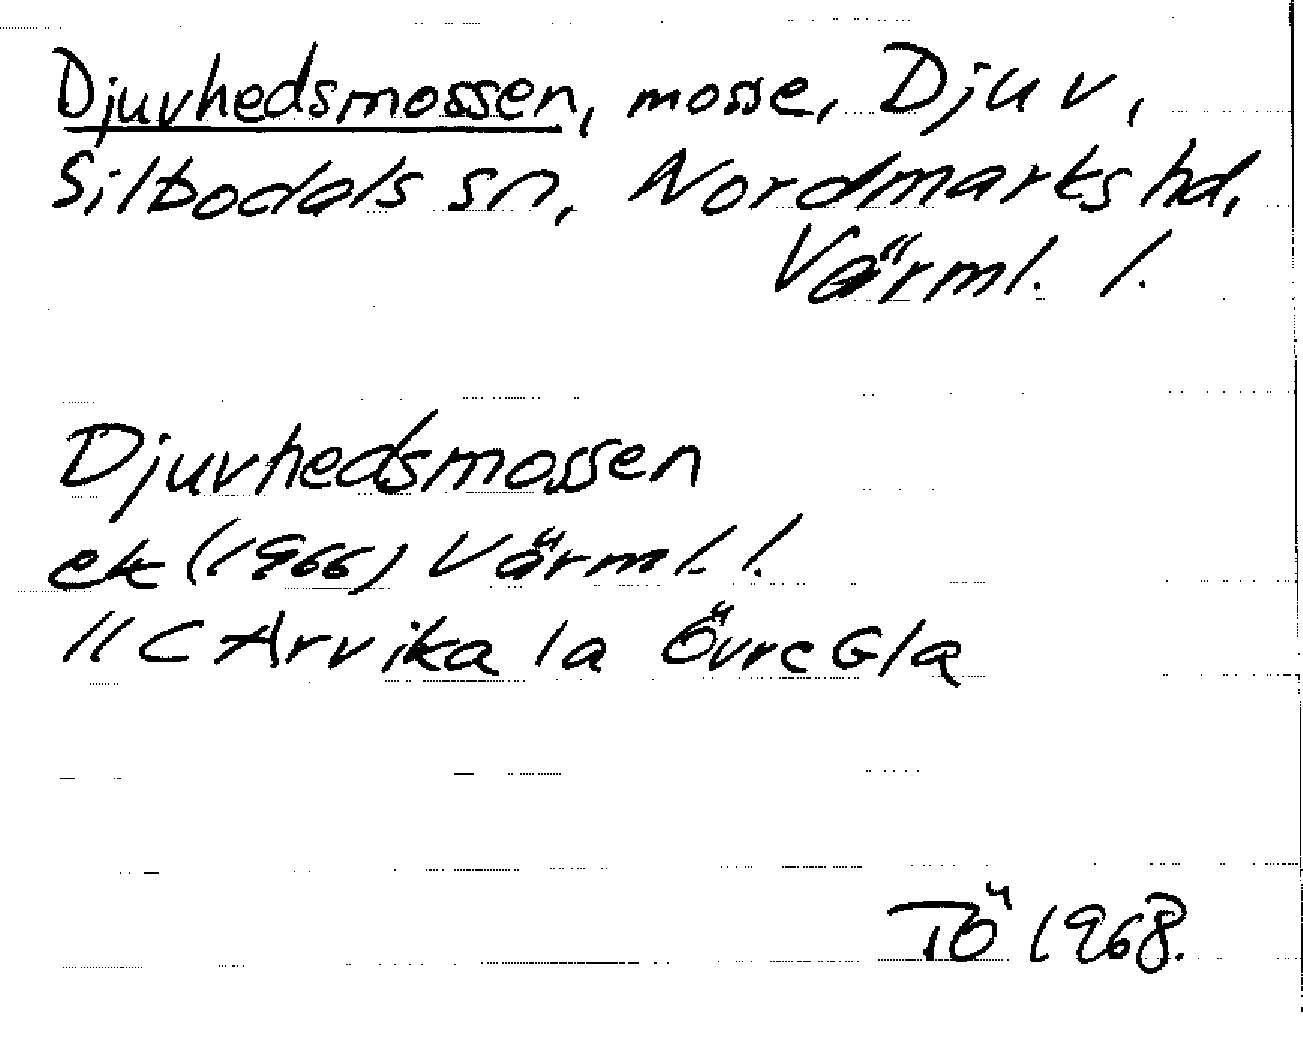 Djuvhedsmossen, mosse, Djuv,
Silbodals sn, Nordmarks hd,
Värml. l.
Djuvhedsmossen
ek (1966) Värml. l.
11 C Arvika 1a Övre Gla
TÖ 1968.